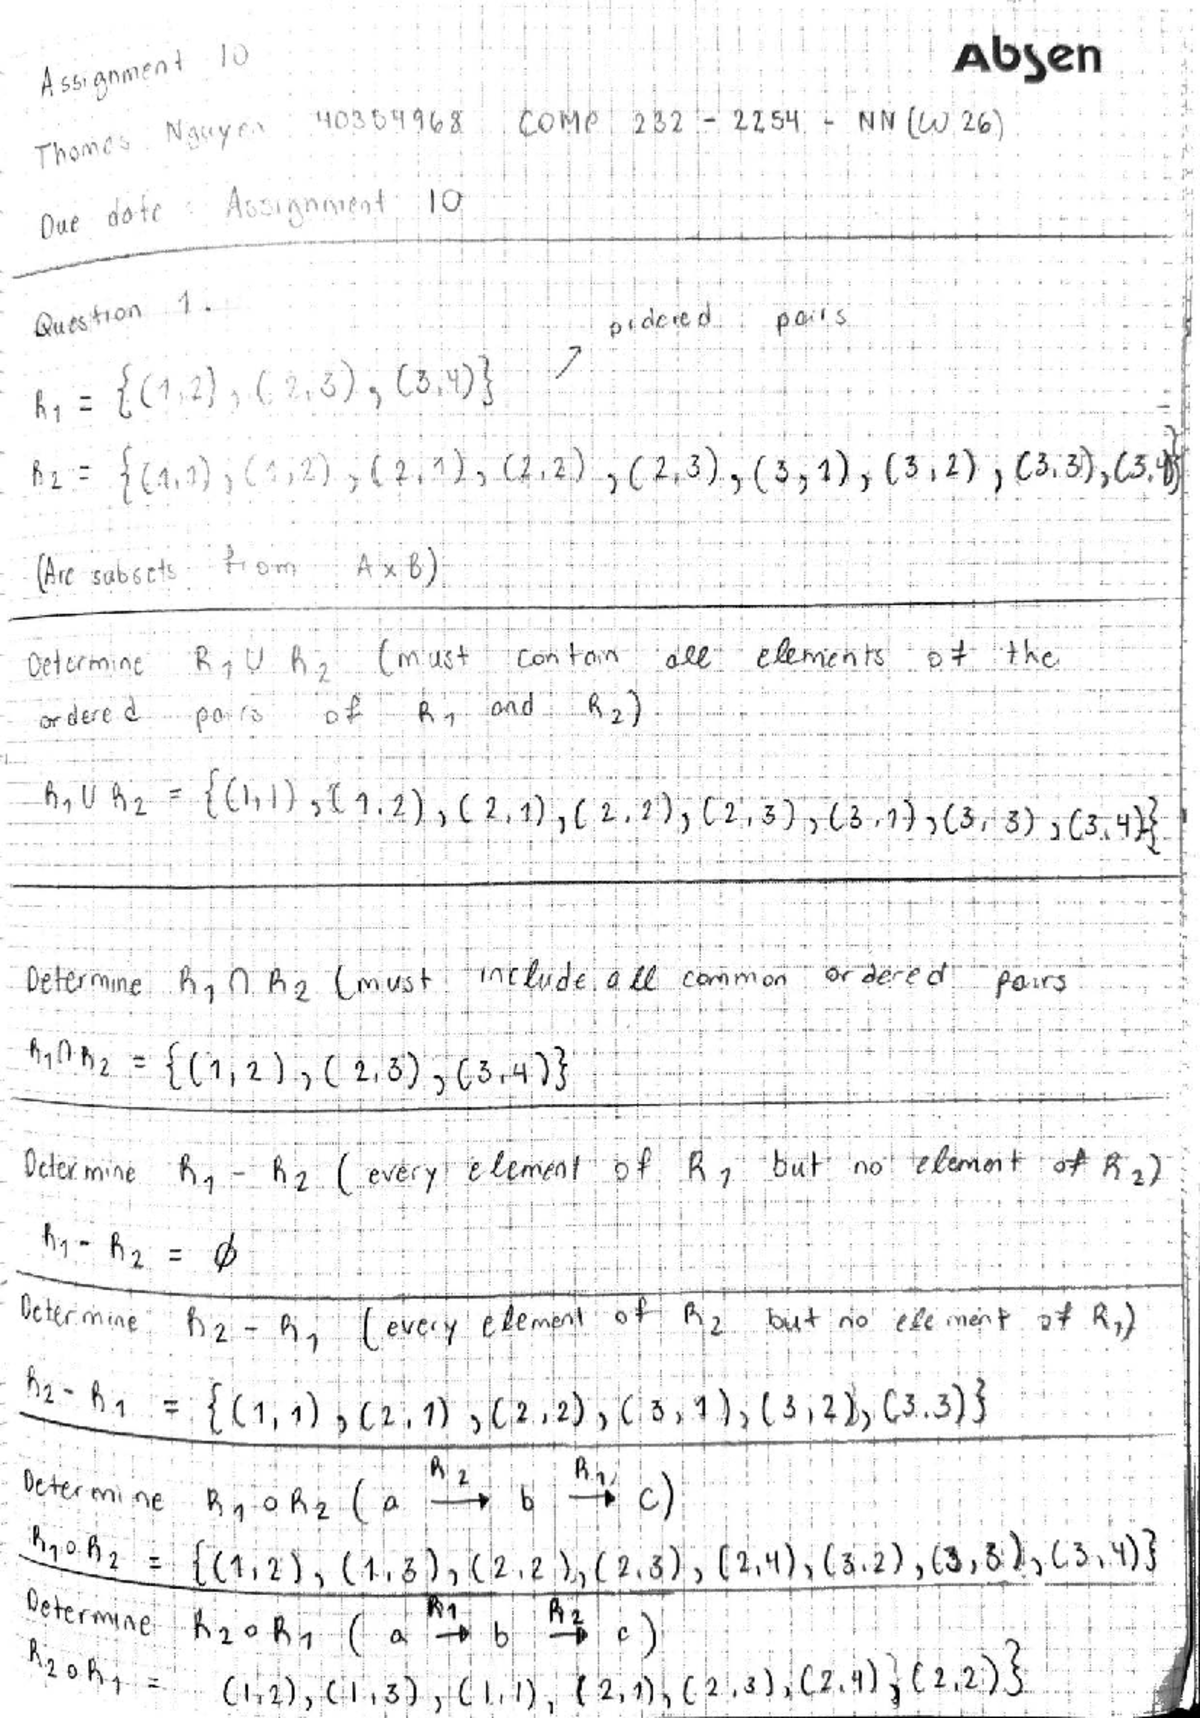 Absen
Assignment 10
Thomas Nguyen 40354968 COMP 232 - 2254 - NN (W 26)
Due date : Assignment 10
Question 1.
ordered pairs
R1 = {(1,2), (2,3), (3,4)} ↗
R2 = {(1,1), (1,2), (2,1), (2,2), (2,3), (3,1), (3,2), (3,3), (3,4)}
(Are subsets from A x B)
Determine R1 ∪ R2 (must contain all elements of the
ordered pairs of R1 and R2)
R1 ∪ R2 = {(1,1), (1,2), (2,1), (2,2), (2,3), (3,1), (3,3), (3,4)}
Determine R1 ∩ R2 (must include all common ordered pairs
R1 ∩ R2 = {(1,2), (2,3), (3,4)}
Determine R1 - R2 (every element of R1 but no element of R2)
R1 - R2 = ∅
Determine R2 - R1 (every element of R2 but no element of R1)
R2 - R1 = {(1,1), (2,1), (2,2), (3,1), (3,2), (3,3)}
Determine R1 ∘ R2 (a R2→ b R1→ c)
R1 ∘ R2 = {(1,2), (1,3), (2,2), (2,3), (2,4), (3,2), (3,3), (3,4)}
Determine R2 ∘ R1 (a R1→ b R2→ c)
R2 ∘ R1 = (1,2), (1,3), (1,1), (2,1), (2,3), (2,4)} (2,2)}